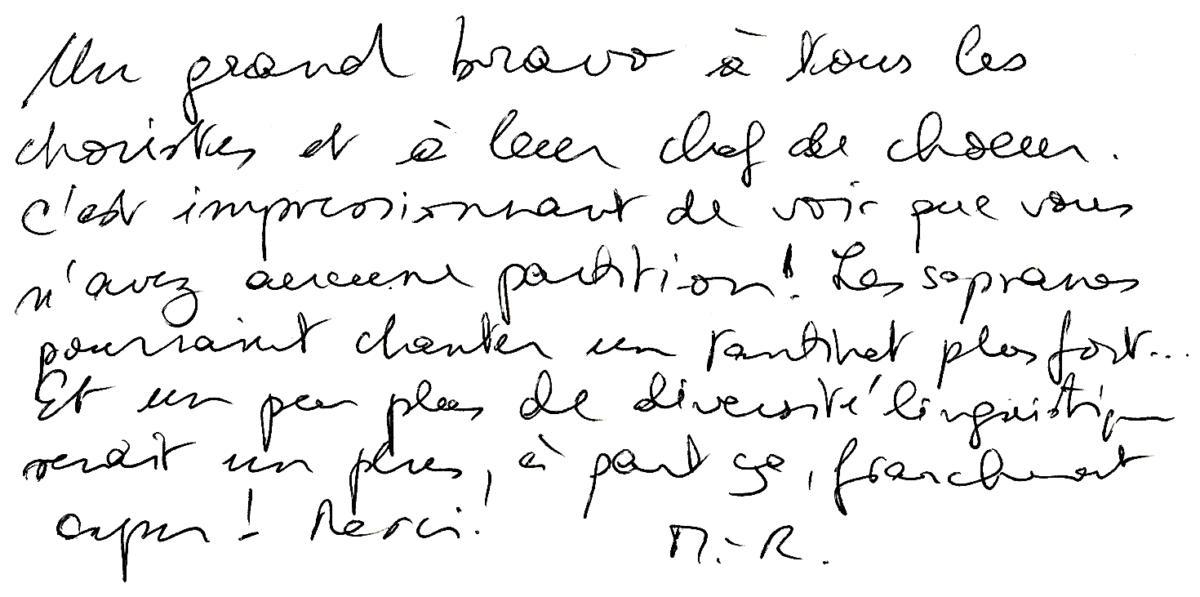 Un grand bravo à tous les
choristes et à leur chef de choeur.
C'est impressionnant de voir que vous
n'avez aucune partition! Les sopranos
pourraient chanter un tantinet plus fort...
Et un peu plus de diversité linguistique
serait un plus, à part ça, franchement
super! Merci!
M.-R.